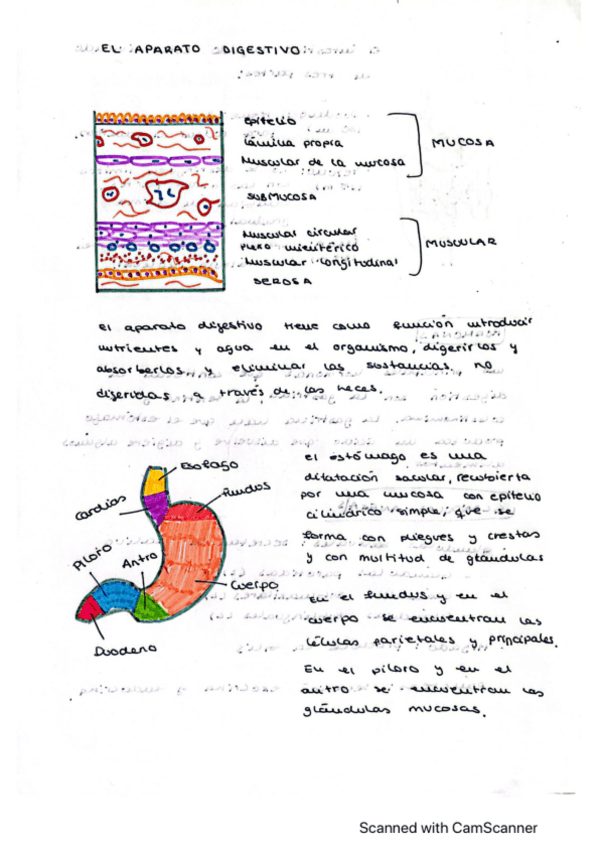 EL APARATO DIGESTIVO
epitelio
lámina propia
Muscular de la mucosa
MUCOSA
SUBMUCOSA
Muscular circular
Plexo mientérico
Muscular longitudinal
MUSCULAR
SEROSA
El aparato digestivo tiene como función introducir
nutrientes y agua en el organismo, digerirlos y
absorberlos y eliminar las sustancias no
digeridas a través de las heces.
Esófago
Fundus
Cardias
Píloro
Antro
Cuerpo
Duodeno
El estómago es una
dilatación sacular, recubierta
por una mucosa con epitelio
cilíndrico simple, que se
forma con pliegues y crestas
y con multitud de glándulas
En el fundus y en el
cuerpo se encuentran las
células parietales y principales.
En el píloro y en el
antro se encuentran las
glándulas mucosas.
Scanned with CamScanner